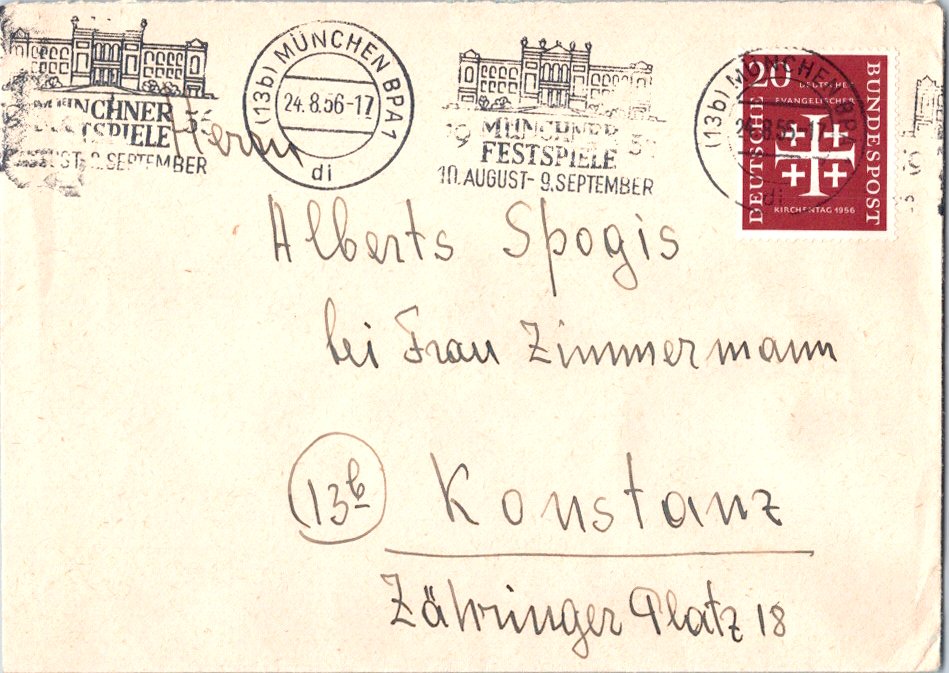 MÜNCHNER
FESTSPIELE
10. AUGUST - 9. SEPTEMBER
(13b) MÜNCHEN BPA 1
24.8.56-17
di
19 MÜNCHNER 5
FESTSPIELE
10. AUGUST - 9. SEPTEMBER
(13b) MÜNCHEN BPA
24.8.56-17
di
20
DEUTSCHER
EVANGELISCHER
KIRCHENTAG 1956
DEUTSCHE
BUNDESPOST
Herrn
Alberts Spogis
bei Frau Zimmermann
13b Konstanz
Zähringer Platz 18